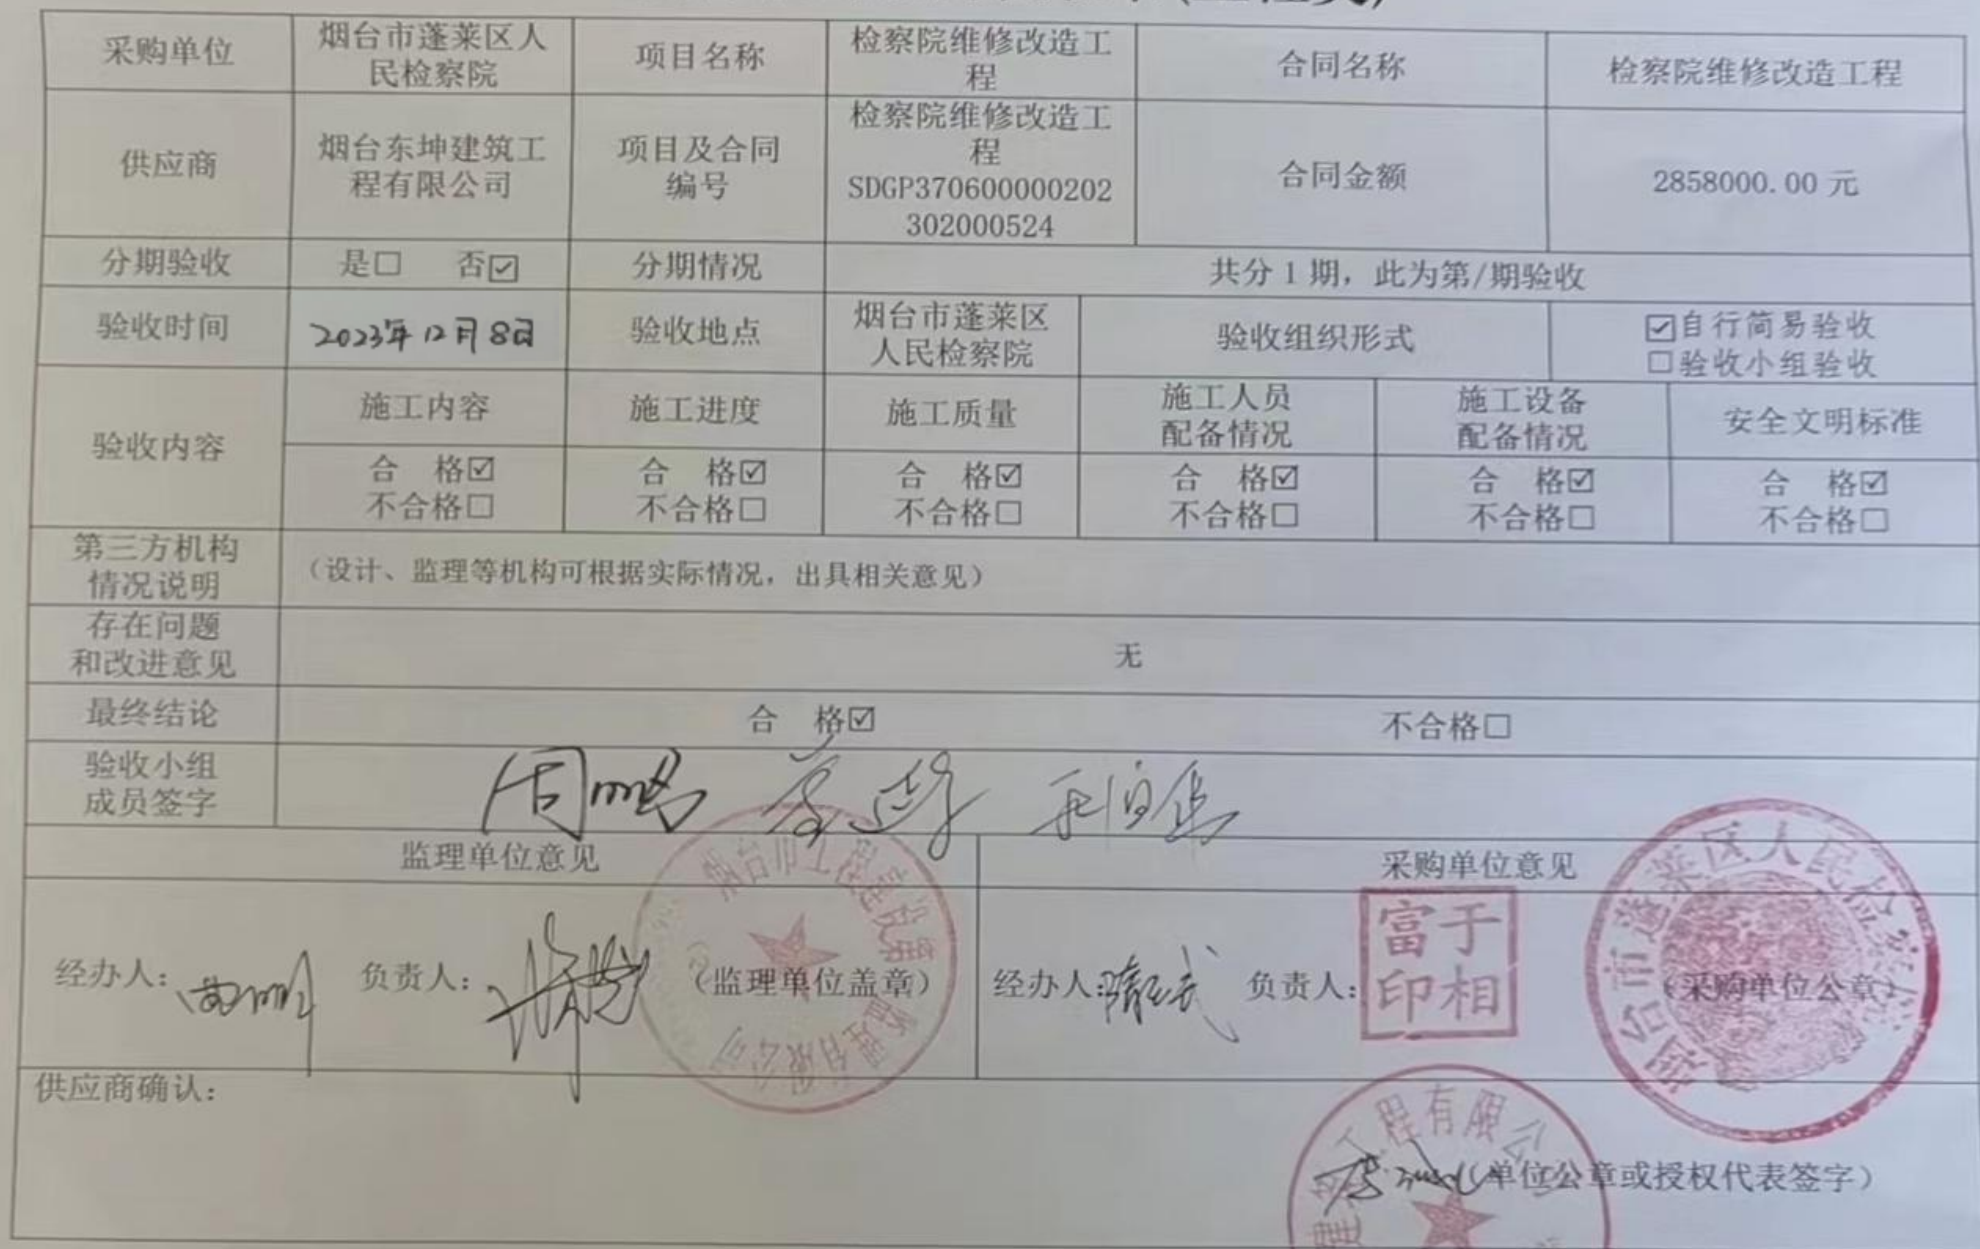 采购单位
烟台市蓬莱区人
民检察院
项目名称
检察院维修改造工
程
合同名称
检察院维修改造工程
供应商
烟台东坤建筑工
程有限公司
项目及合同
编号
检察院维修改造工
程
SDGP370600000202
302000524
合同金额
2858000.00 元
分期验收
是□ 否☑
分期情况
共分 1 期，此为第/期验收
验收时间
2023年12月8日
验收地点
烟台市蓬莱区
人民检察院
验收组织形式
☑自行简易验收
□验收小组验收
验收内容
施工内容
施工进度
施工质量
施工人员
配备情况
施工设备
配备情况
安全文明标准
合 格☑
不合格□
合 格☑
不合格□
合 格☑
不合格□
合 格☑
不合格□
合 格☑
不合格□
合 格☑
不合格□
第三方机构
情况说明
（设计、监理等机构可根据实际情况，出具相关意见）
存在问题
和改进意见
无
最终结论
合 格☑
不合格□
验收小组
成员签字
周鹏
监理单位意见
采购单位意见
经办人：
负责人：
（监理单位盖章）
经办人：
负责人：
富于
印相
（采购单位公章）
烟台市蓬莱区人民检察院
供应商确认：
工程有限公
（单位公章或授权代表签字）